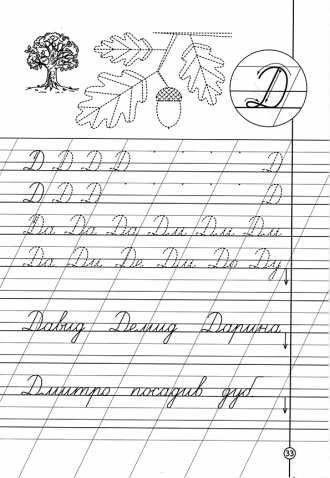 Д
Д Д Д Д Д
Д Д Д Д
Да Да Да Дм Дм Дм
Да Ди Де Ди До Ду
Давид Демид Дарина
Дмитро посадив дуб.
33